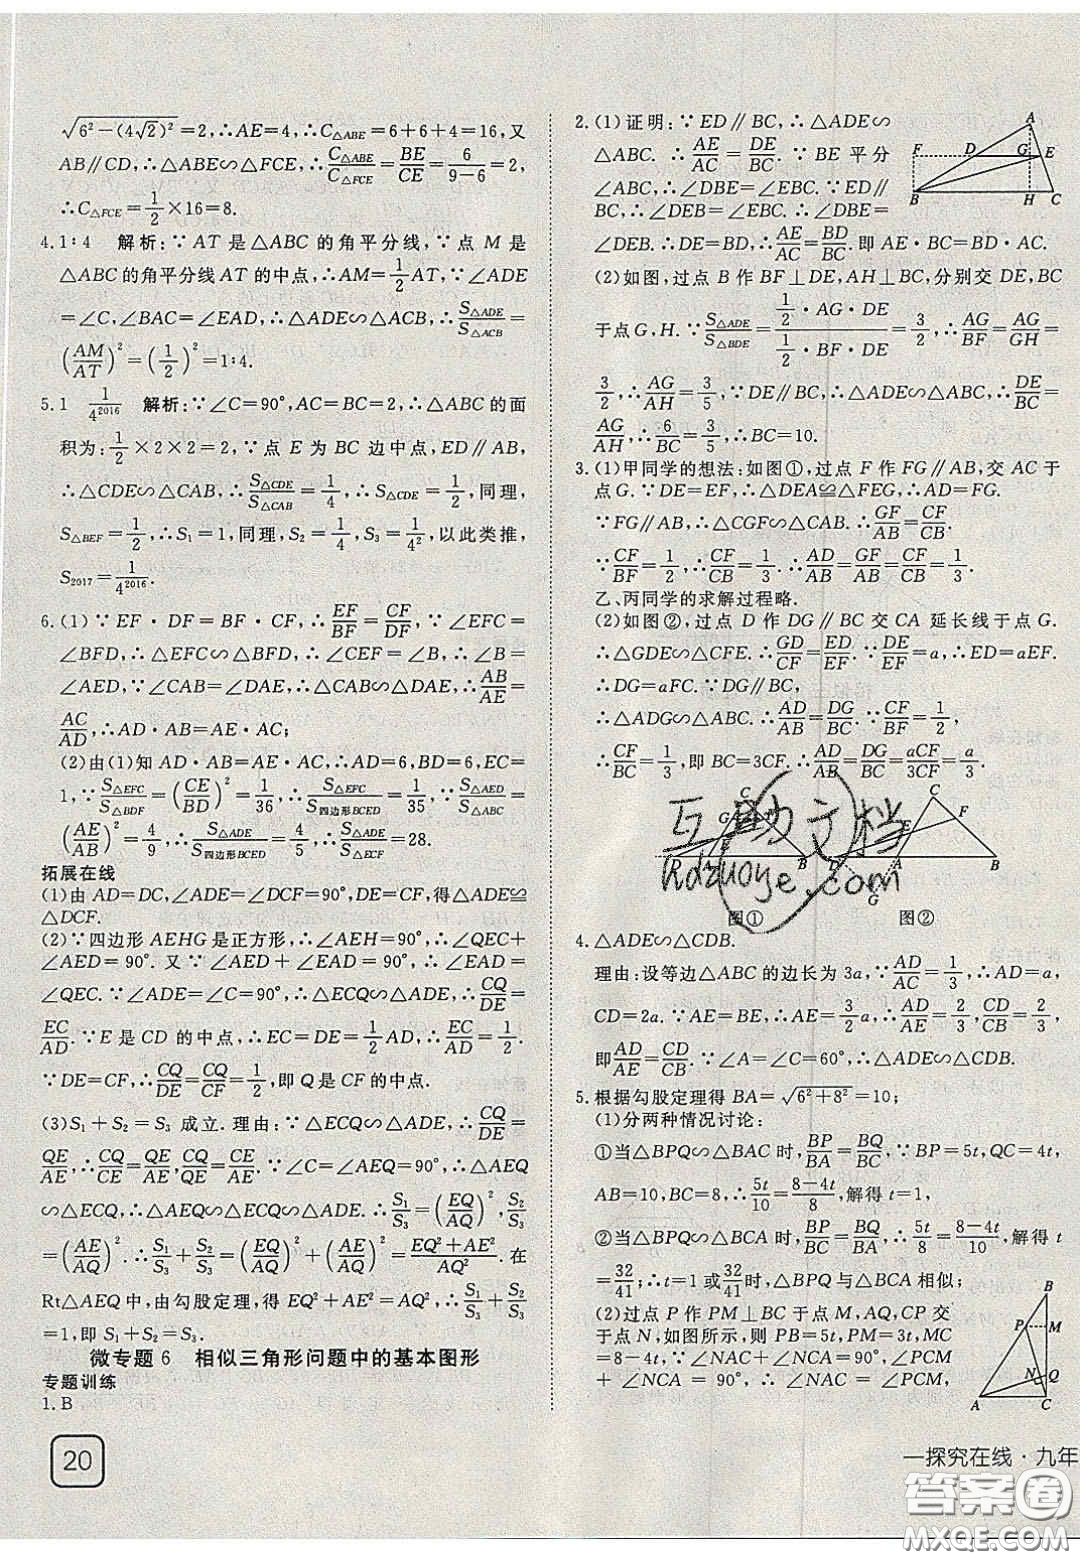 √(6²-(4√2)²)=2,∴AE=4,∴C△ABE=6+6+4=16,又
AB∥CD,∴△ABE∽△FCE,∴C△ABE/C△FCE=BE/CE=6/(9-6)=2,
∴C△FCE=1/2×16=8.
4.1∶4 解析:∵AT是△ABC的角平分线,∵点M是
△ABC的角平分线AT的中点,∴AM=1/2AT,∵∠ADE
=∠C,∠BAC=∠EAD,∴△ADE∽△ACB,∴S△ADE/S△ACB
=(AM/AT)²=(1/2)²=1∶4.
5.1 1/4²⁰¹⁶ 解析:∵∠C=90°,AC=BC=2,∴△ABC的面
积为:1/2×2×2=2,∵点E为BC边中点,ED∥AB,
∴△CDE∽△CAB,∴S△CDE/S△CAB=1/4,∴S△CDE=1/2,同理,
S△BEF=1/2,∴S₁=1,同理,S₂=1/4,S₃=1/4²,以此类推,
S₂₀₁₇=1/4²⁰¹⁶.
6.(1)∵EF·DF=BF·CF,∴EF/BF=CF/DF,∵∠EFC
=∠BFD,∴△EFC∽△BFD,∴∠CEF=∠B,∴∠B=
∠AED,∵∠CAB=∠DAE,∴△CAB∽△DAE,∴AB/AE=
AC/AD,∴AD·AB=AE·AC;
(2)由(1)知AD·AB=AE·AC,∴AD=6,BD=6,EC=
1,∵S△EFC/S△BDF=(CE/BD)²=1/36,∴S△EFC/S四边形BCED=1/35,∵S△AED/S△ABC=
(AE/AB)²=4/9,∴S△ADE/S四边形BCED,∴S△ADE/S△ECF=28.
拓展在线
(1)由AD=DC,∠ADE=∠DCF=90°,得△ADE≌
△DCF.
(2)∵四边形AEHG是正方形,∴∠AEH=90°,∴∠QEC+
∠AED=90°.又∵∠AED+∠EAD=90°,∴∠EAD=
∠QEC.∵∠ADE=∠C=90°,∴△ECQ∽△ADE,∴CQ/DE=
EC/AD.∵E是CD的中点,∴EC=DE=1/2AD,∴EC/AD=1/2.
∵DE=CF,∴CQ/DE=CQ/CF=1/2,即Q是CF的中点.
(3)S₁+S₂=S₃成立.理由:∵△ECQ∽△ADE,∴CQ/DE=
QE/AE,∴CQ/CE=QE/AE,∴CQ/QE=CE/AE.∵∠C=∠AEQ=90°,∴△AEQ
∽△ECQ,∴△AEQ∽△ECQ∽△ADE.∴S₁/S₃=(EQ/AQ)²,S₂/S₃
=(AE/AQ)².∴S₁/S₃+S₂/S₃=(EQ/AQ)²+(AE/AQ)²=(EQ²+AE²)/AQ².在
Rt△AEQ中,由勾股定理,得EQ²+AE²=AQ²,∴S₁/S₃+S₂/S₃
=1,即S₁+S₂=S₃.
微专题6 相似三角形问题中的基本图形
专题训练
1.B
20
2.(1)证明:∵ED∥BC,∴△ADE∽
△ABC.∴AE/AC=DE/BC.∵BE平分
∠ABC,∴∠DBE=∠EBC.∵ED∥
BC,∴∠DEB=∠EBC,∴∠DBE=
∠DEB.∴DE=BD,∴AE/AC=BD/BC.即AE·BC=BD·AC.
(2)如图,过点B作BF⊥DE,AH⊥BC,分别交DE,BC
于点G,H.∵S△ADE/S△BDE=(1/2·AG·DE)/(1/2·BF·DE)=3/2,∴AG/BF=AG/GH=
3/2,∴AG/AH=3/5,∵△ADE∽△ABC,∴DE/BC=
AG/AH,∴6/BC=3/5,∴BC=10.
3.(1)甲同学的想法:如图①,过点F作FG∥AB,交AC于
点G.∵DE=EF,∴△DEA≌△FEG,∴AD=FG.
∵FG∥AB,∴△CGF∽△CAB.∴GF/AB=CF/CB.
∵CF/BF=1/2,∴CF/CB=1/3.∴AD/AB=GF/AB=CF/CB=1/3.
乙、丙同学的求解过程略.
(2)如图②,过点D作DG∥BC交CA延长线于点G.
∴△GDE∽△CFE.∴GD/CF=ED/EF.∵DE/EF=a,∴GD/CF=a.
∴DG=aFC.∵DG∥BC,
∴△ADG∽△ABC.∴AD/AB=DG/BC.∵CF/BF=1/2,
∴CF/BC=1/3,即BC=3CF.∴AD/AB=DG/BC=aCF/3CF=a/3.
图① 图②
4.△ADE∽△CDB.
理由:设等边△ABC的边长为3a,∵AD/AC=1/3,∴AD=a,
CD=2a.∵AE=BE,∴AE=3/2a,∴AD/AE=2/3,CD/CB=2/3,
即AD/AE=CD/CB.∵∠A=∠C=60°,∴△ADE∽△CDB.
5.根据勾股定理得BA=√(6²+8²)=10;
(1)分两种情况讨论:
①当△BPQ∽△BAC时,BP/BA=BQ/BC,∵BP=5t,QC=4t,
AB=10,BC=8,∴5t/10=(8-4t)/8,解得t=1,
②当△BPQ∽△BCA时,BP/BC=BQ/BA,∴5t/8=(8-4t)/10,解得t
=32/41;∴t=1或32/41时,△BPQ与△BCA相似;
(2)过点P作PM⊥BC于点M,AQ,CP交
于点N,如图所示,则PB=5t,PM=3t,MC
=8-4t,∵∠NAC+∠NCA=90°,∠PCM
+∠NCA=90°,∴∠NAC=∠PCM,
一探究在线·九年
互动文档
Rdzuoye.com
答案圈
MXQE.COM